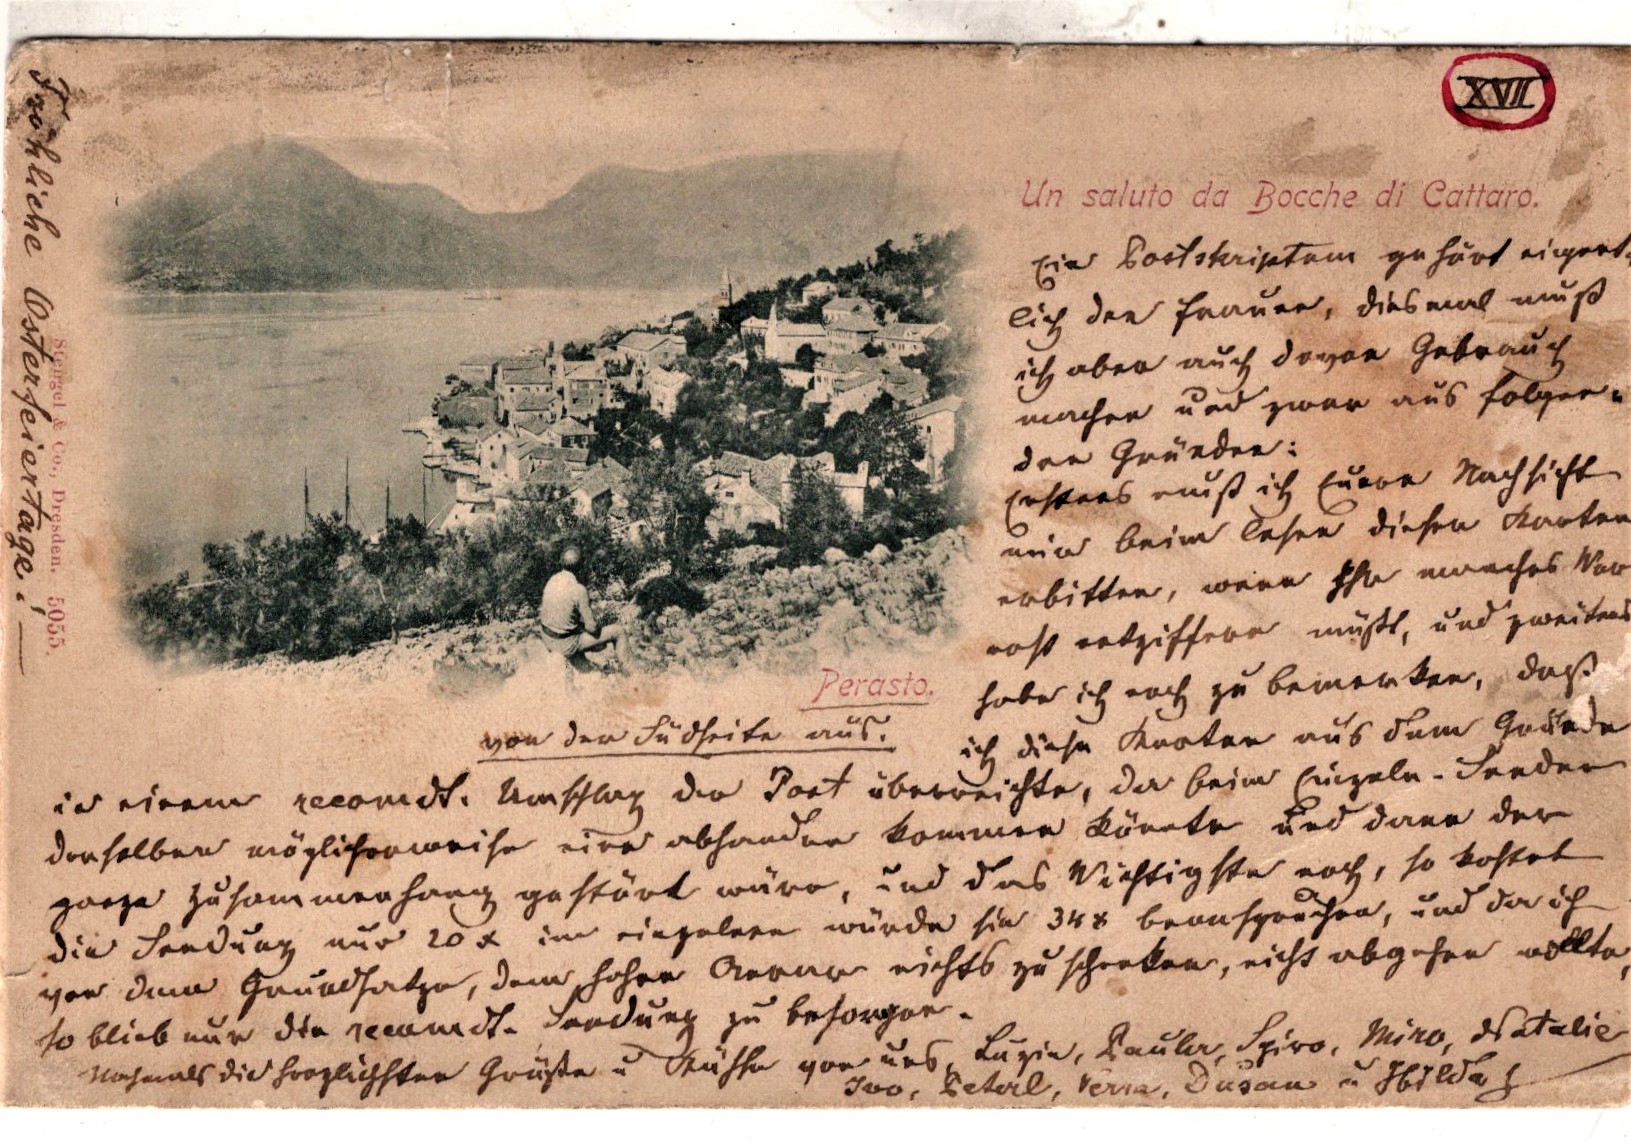 XVII
Un saluto da Bocche di Cattaro.
Fröhliche Osterfeiertage!
Stengel & Co., Dresden. 5055.
Perasto.
von der Südseite aus.
Ein Postskriptum gehört eigent-
lich den Frauen, diesmal muß
ich aber auch davon Gebrauch
machen und zwar aus folgen-
den Gründen:
Erstens muß ich Euere Nachsicht
mir beim Lesen dieser Karten
erbitten, wenn Ihr manches
entziffern müßt, und zweitens
habe ich noch zu bemerken, daß
ich diese Karten aus dem Grunde
in einem recomdt. Umschlag der Post überreichte, da beim Einzeln-Senden
derselben möglicherweise eine abhanden kommen könnte und dann der
ganze Zusammenhang gestört wäre, und das Wichtigste noch, so kostet
die Sendung nur 20 x im einzelnen würde sie 34 x beanspruchen, und da ich
von dem Grundsatze, dem hohen Aerar nichts zu schenken, nicht abgehen wollte,
so blieb nur die recomdt. Sendung zu besorgen.
Nochmals die herzlichsten Grüße u Küsse von uns, Paula, Spiro, Miro, Natalie
Ivo, Vera, Dušan u Hilda